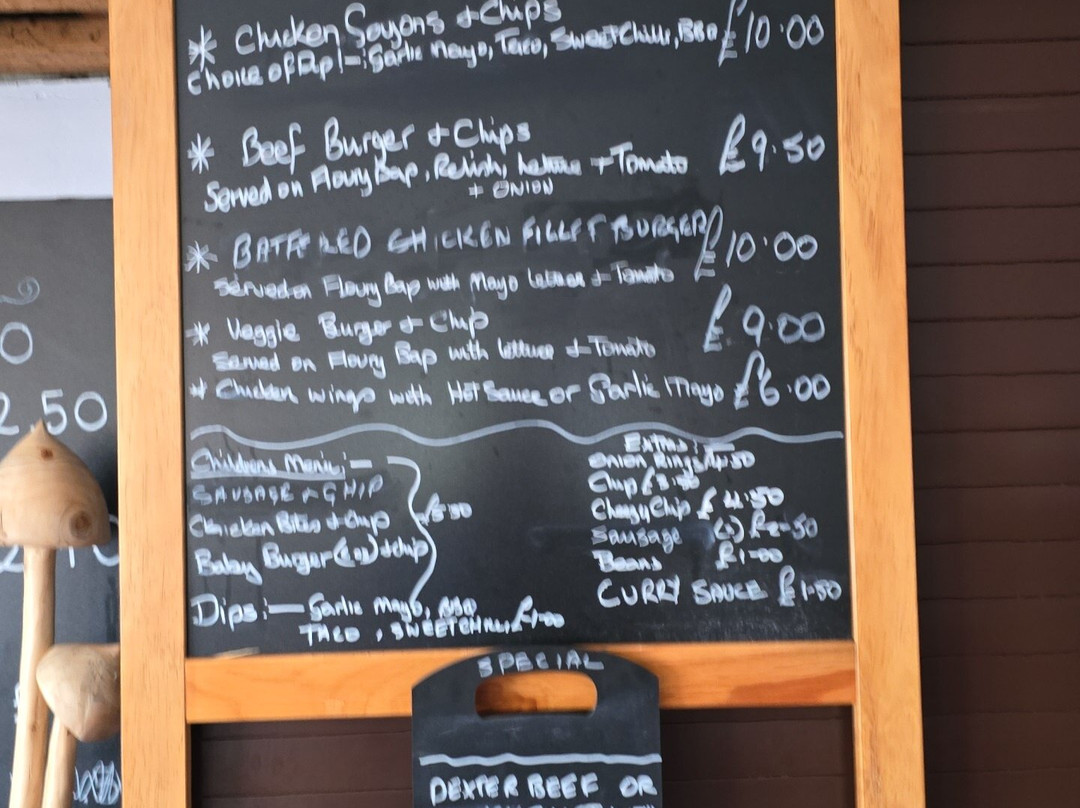 * Chicken Goujons + Chips £10.00
Choice of Dip :- Garlic Mayo, Taco, Sweet Chilli, BBQ
* Beef Burger + Chips £9.50
Served on Floury Bap, Relish, Lettuce + Tomato
+ ONION
* BATTERED CHICKEN FILLET BURGER £10.00
Served on Floury Bap with Mayo Lettuce + Tomato
* Veggie Burger + Chip £9.00
Served on Floury Bap with Lettuce + Tomato
* Chicken wings with Hot Sauce or Garlic Mayo £6.00
Childrens Menu :-
SAUSAGE + CHIP
Chicken Bites + Chip
Baby Burger + chip
£5.50
Dips :- Garlic Mayo, BBQ
TACO, SWEETCHILLI £1.00
Extras :-
Onion Rings
Chip
Cheesy Chip £4.50
Sausage £2.50
Beans £1.00
CURRY SAUCE £1.50
SPECIAL
DEXTER BEEF OR
2.50